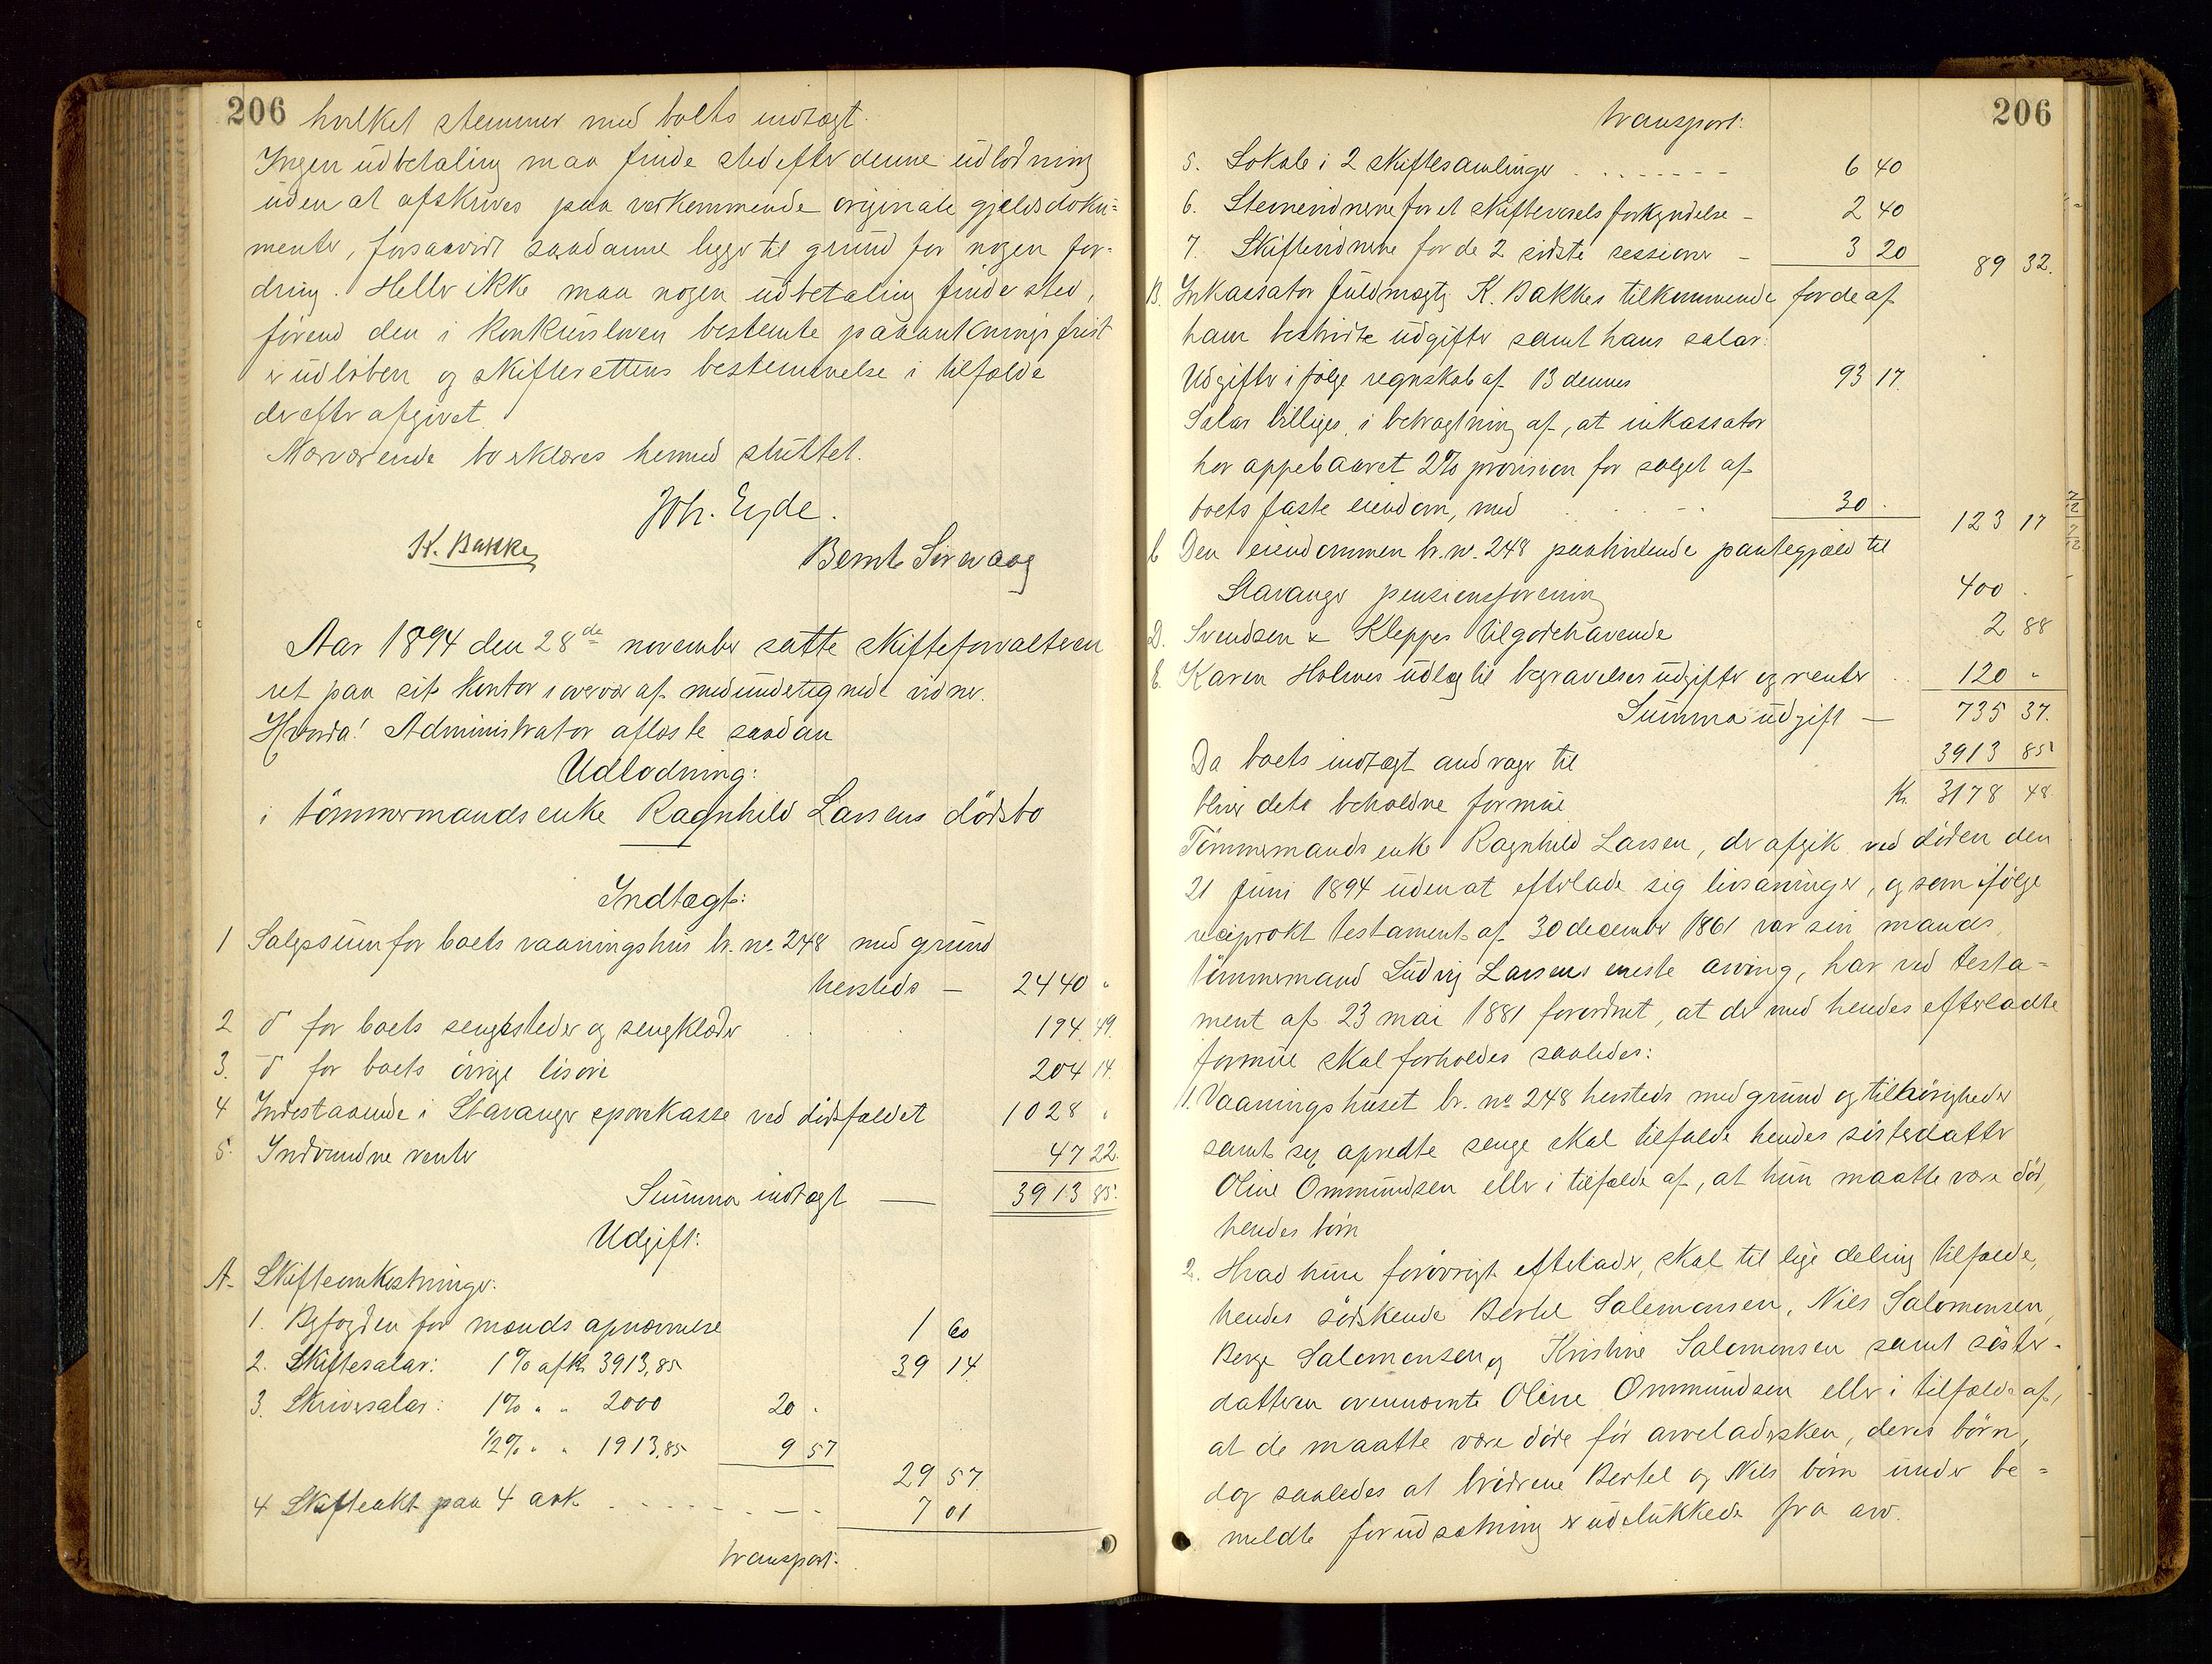 206
hvilket stemmer med boets indtægt.
Ingen udbetaling maa finde sted efter denne udlodning
uden at afskrives paa vedkommende originale gjeldsdoku=
menter, forsaavidt saadanne ligger til grund for nogen for=
dring. Heller ikke maa nogen udbetaling finde sted,
førend den i konkursloven bestemte paaankningsfrist
er udløben og skifterettens bestemmelse i tilfælde
derefter afgivet.
Nærværende bo erklæres hermed sluttet.
Joh. Eyde.
K. Bakke
Bernt Sirevaag
Aar 1894 den 28de november satte skifteforvalteren
ret paa sit kontor i overvær af medundertegnede vidner.
Hvorda! Administrator afløste saadan
Udlodning:
i tömmermandsenke Ragnhild Larsens dödsbo
Indtægt:
1 Salgssum for boets vaaningshus br. no. 248 med grund
hersteds — 2440 "
2 d for boets sengesteder og sengklæder 194.49.
3. d for boets övrige lösöre 204 14.
4 Indestaaende i Stavanger sparekasse ved dödsfaldet 1028 "
5. Indvundne renter 47 22.
Summa indtægt — 3913 85.
Udgift:
A. Skifteomkostninger:
1. Byfogden for mænds opnævnelse 1 60
2. Skiftesalar: 1% af kr. 3913,85 39 14.
3. Skriversalar: 1% " " 2000 20 "
1/2% " " 1913,85 9 57
29 57.
4 Skifteakt paa 4 ark 7 01
transport:
206
transport:
5. Lokale i 2 skiftesamlinger 6 40
6. Stevnevidnerne for et skiftevarsels forkyndelse - 2 40
7. Skiftevidnerne for de 2 sidste sessioner - 3 20
89 32.
B. Inkassator fuldmægtig K. Bakkes tilkommende for de af
ham bestridte udgifter samt hans salar:
Udgifter ifølge regnskab af 13 dennes 93 17.
Salar billiges, i betragtning af, at inkassator
har oppebaaret 2% provision for salget af
boets faste eiendom, med 30 "
123 17
C Den eiendommen br. no. 248 paahvilende pantegjæld til
Stavanger pensionsforening 400 "
D. Svendsen & Kleppes tilgodehavende 2 88
E. Karen Holmes udlæg til begravelsesudgifter og renter 120 "
Summa udgift — 735 37.
Da boets indtægt andrager til 3913 85
bliver dets beholdne formue kr. 3178 48
Tömmermandsenke Ragnhild Larsen, der afgik ved döden den
21 Juni 1894 uden at efterlade sig livsarvinger, og som ifølge
reciprokt testament af 30 december 1861 var sin mands,
tömmermand Ludvig Larsens eneste arving, har ved testa=
ment af 23 mai 1881 forordnet, at der med hendes efterladte
formue skal forholdes saaledes:
1. Vaaningshuset br. no 248 hersteds med grund og tilhørigheder
samt sex opredte senge skal tilfalde hendes sösterdatter
Oline Ommundsen eller i tilfælde af, at hun maatte være död,
hendes börn
2. Hvad hun forövrigt efterlader, skal til lige deling tilfalde,
hendes södskende Bertel Salomonsen, Nils Salomonsen,
Berge Salomonsen og Kristine Salomonsen samt söster-
datteren ovennævnte Oline Ommundsen eller i tilfælde af,
at de maatte være döde för arveladersken, deres börn,
dog saaledes at brödrene Bertel og Nils börn under be=
meldte forudsætning er udelukkede fra arv.